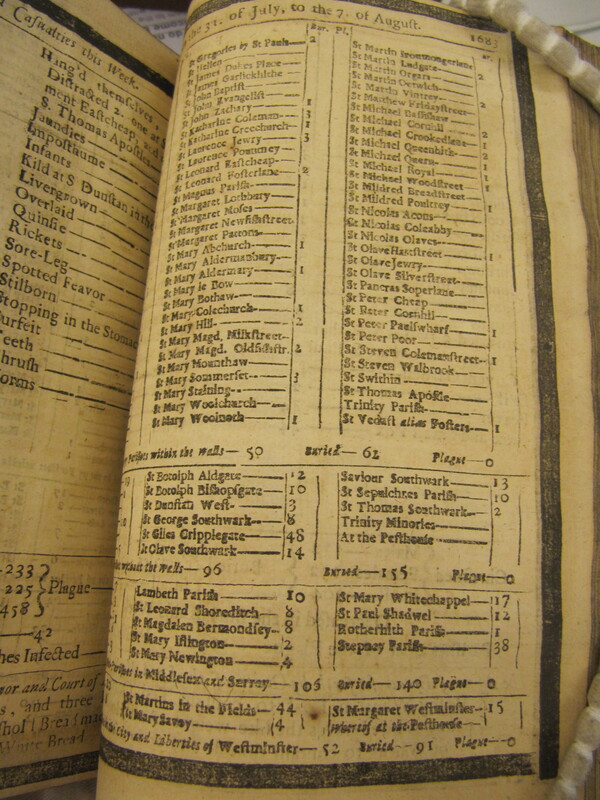 Casualties this Week.
Hang'd themselves,
Distracted 2. one at
ment Eastcheap, and
S. Thomas Apostles
Jaundies
Imposthume
Infants
Kild at S Dunstan in the
Livergrown
Overlaid
Quinsie
Rickets
Sore-Leg
Spotted Feavor
Stilborn
Stopping in the Stomac
urfeit
eeth
hrush
orms
233
225 } Plague
458
42
hes Infected
nor and Court of
s, and three
White Bread
the 31. of July, to the 7. of August. 1683
Bur. Pl.
St Gregories by St Pauls 2
St Hellen
St James Dukes Place
St James Garlickhithe
St John Baptist
St John Evangelist
St John Zachary 1
St Katharine Coleman 3
St Katharine Creechurch 1
St Laurence Jewry 3
St Laurence Pountney
St Leonard Eastcheap
St Leonard Fosterlane 2
St Magnus Parish
St Margaret Lothbury
St Margaret Moses
St Margaret Newfishstreet
St Margaret Pattons
St Mary Abchurch 1
St Mary Aldermanbury
St Mary Aldermary 1
St Mary le Bow
St Mary Bothaw
St Mary Colechurch 1
St Mary Hill 2
St Mary Magd. Milkstreet
St Mary Magd. Oldfishstr. 2
St Mary Mounthaw
St Mary Sommerset 3
St Mary Staining
St Mary Woolchurch
St Mary Woolnoth 1
St Martin Ironmongerlane
St Martin Ludgate 2
St Martin Orgars
St Martin Outwich
St Martin Vintrey
St Matthew Fridaystreet
St Michael Bassishaw
St Michael Cornhil
St Michael Crookedlane
St Michael Queenhith
St Michael Quern
St Michael Royal
St Michael Woodstreet
St Mildred Breadstreet
St Mildred Poultrey
St Nicolas Acons
St Nicolas Coleabby
St Nicolas Olaves
St Olave Hartstreet 1
St Olave Jewry
St Olave Silverstreet
St Pancras Soperlane
St Peter Cheap
St Peter Cornhil
St Peter Paulswharf 1
St Peter Poor
St Steven Colemanstreet 1
St Steven Walbrook
St Swithin
St Thomas Apostle
Trinity Parish
St Vedast alias Fosters 1
Parishes within the Walls— 50 Buried— 62 Plague—0
St Botolph Aldgate 12
St Botolph Bishopsgate 10
St Dunstan West 3
St George Southwark 8
St Giles Cripplegate 48
St Olave Southwark 14
Saviour Southwark 13
St Sepulchres Parish 10
St Thomas Southwark 2
Trinity Minories
At the Pesthouse
without the Walls— 96 Buried— 155 Plague—0
Lambeth Parish 10
St Leonard Shoreditch 8
St Magdalen Bermondsey 8
St Mary Islington 2
St Mary Newington 4
St Mary Whitechappel 17
St Paul Shadwel 12
Rotherhith Parish 1
Stepney Parish 38
Parishes in Middlesex and Surrey— 106 Buried— 140 Plague—0
St Martins in the Fields— 44
St Mary Savoy 4
St Margaret Westminster—15
Whereof at the Pesthouse
in the City and Liberties of Westminster— 52 Buried— 91 Plague—0